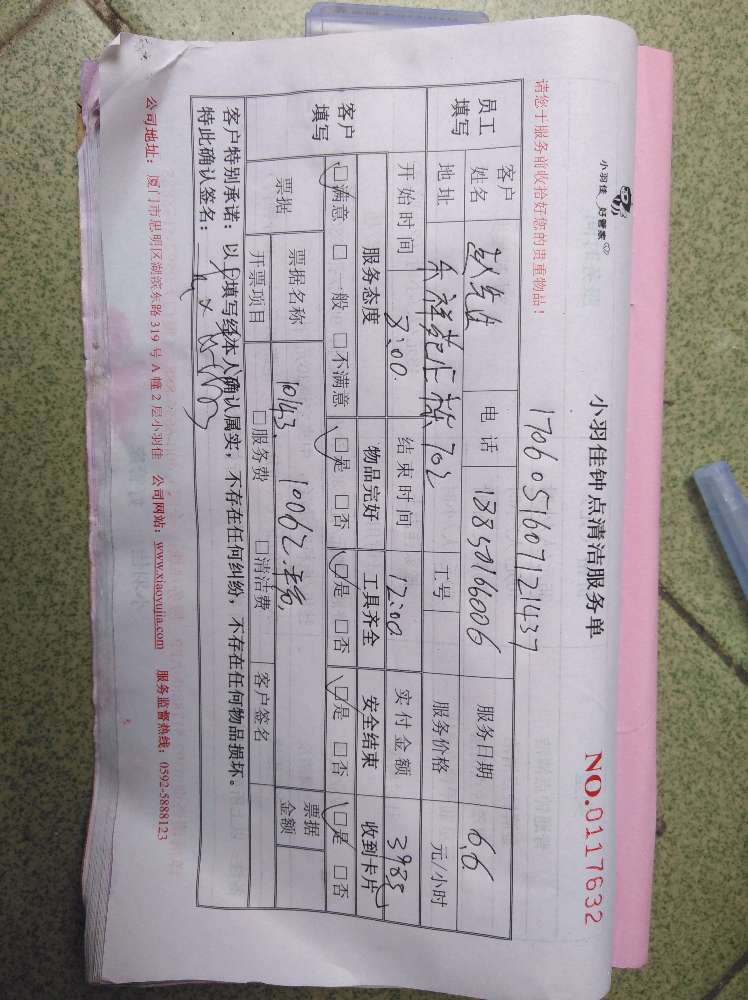 小羽佳 好管家
小羽佳钟点清洁服务单
NO.0117632
请您于服务前收拾好您的贵重物品！
1706051607121437
员工填写
客户姓名 赵先生 电话 13850166006 服务日期 6.6
地址 禾祥苑 702 工号 服务价格 元/小时
开始时间 8:00 结束时间 12:00 实付金额
客户填写
服务态度 物品完好 工具齐全 安全结束 收到卡片
□满意 □一般 □不满意 □是 □否 □是 □否 □是 □否 □是 □否
票据 票据名称 票据金额
10143. 10062.
开票项目 □服务费 □清洁费 客户签名
客户特别承诺：以上填写经本人确认属实，不存在任何纠纷，不存在任何物品损坏。
特此确认签名：
公司地址：厦门市思明区湖滨东路 319 号 A 幢 2 层小羽佳 公司网站：www.xiaoyujia.com 服务监督热线：0592-5888123